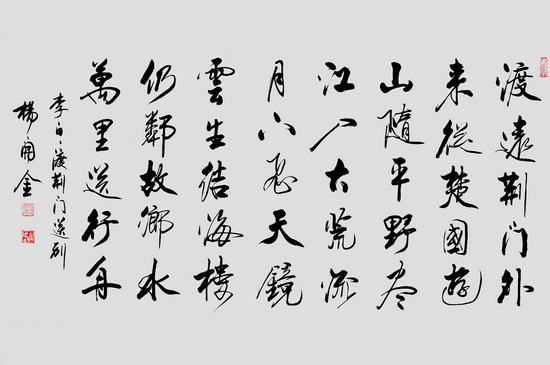 渡遠荆门外
来從楚國遊
山隨平野尽
江入大荒流
月下飛天鏡
雲生结海楼
仍鄰故鄉水
萬里送行舟
李白渡荆门送别
楊金